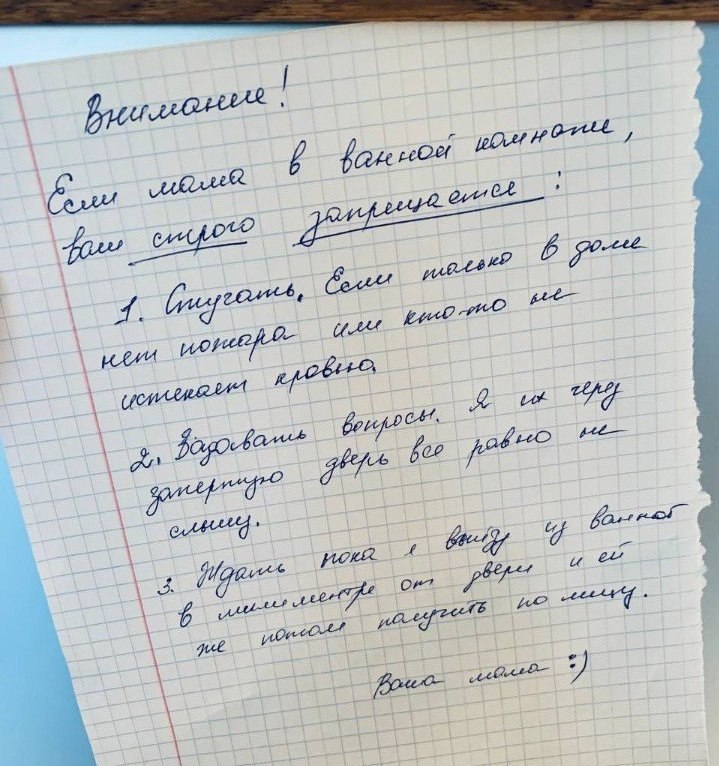 Внимание!
Если мама в ванной комнате,
вам строго запрещается:
1. Стучать. Если только в доме
нет пожара или кто-то не
истекает кровью.
2. Задавать вопросы. Я их через
запертую дверь все равно не
слышу.
3. Ждать пока я выйду из ванной
в милиментре от двери и ей
же потом получить по лицу.
Ваша мама :)